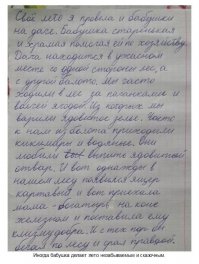 Своё лето я провела у бабушки
на даче. Бабушка старенькая
и хромая помогая ей по хозяйству.
Дача находится в ужасном
месте с одной стороны лес, а
с другой болото. Мы часто
ходили в лес за поганками и
волчьей ягодой. Из которых мы
варили ядовитое зелье. Часто
к нам из болота приходили
кикиморы и водяные. Они
любили выпить ядовитый
отвар. И вот однажды в
нашем лесу появился лидер
картавый и вот приехала
мама - богатырь на коне
железном и поставила ему
клизму добра. И с тех пор он
бегал по лесу и срал правдой.
Иногда бабушка делает лето незабываемым и сказочным.